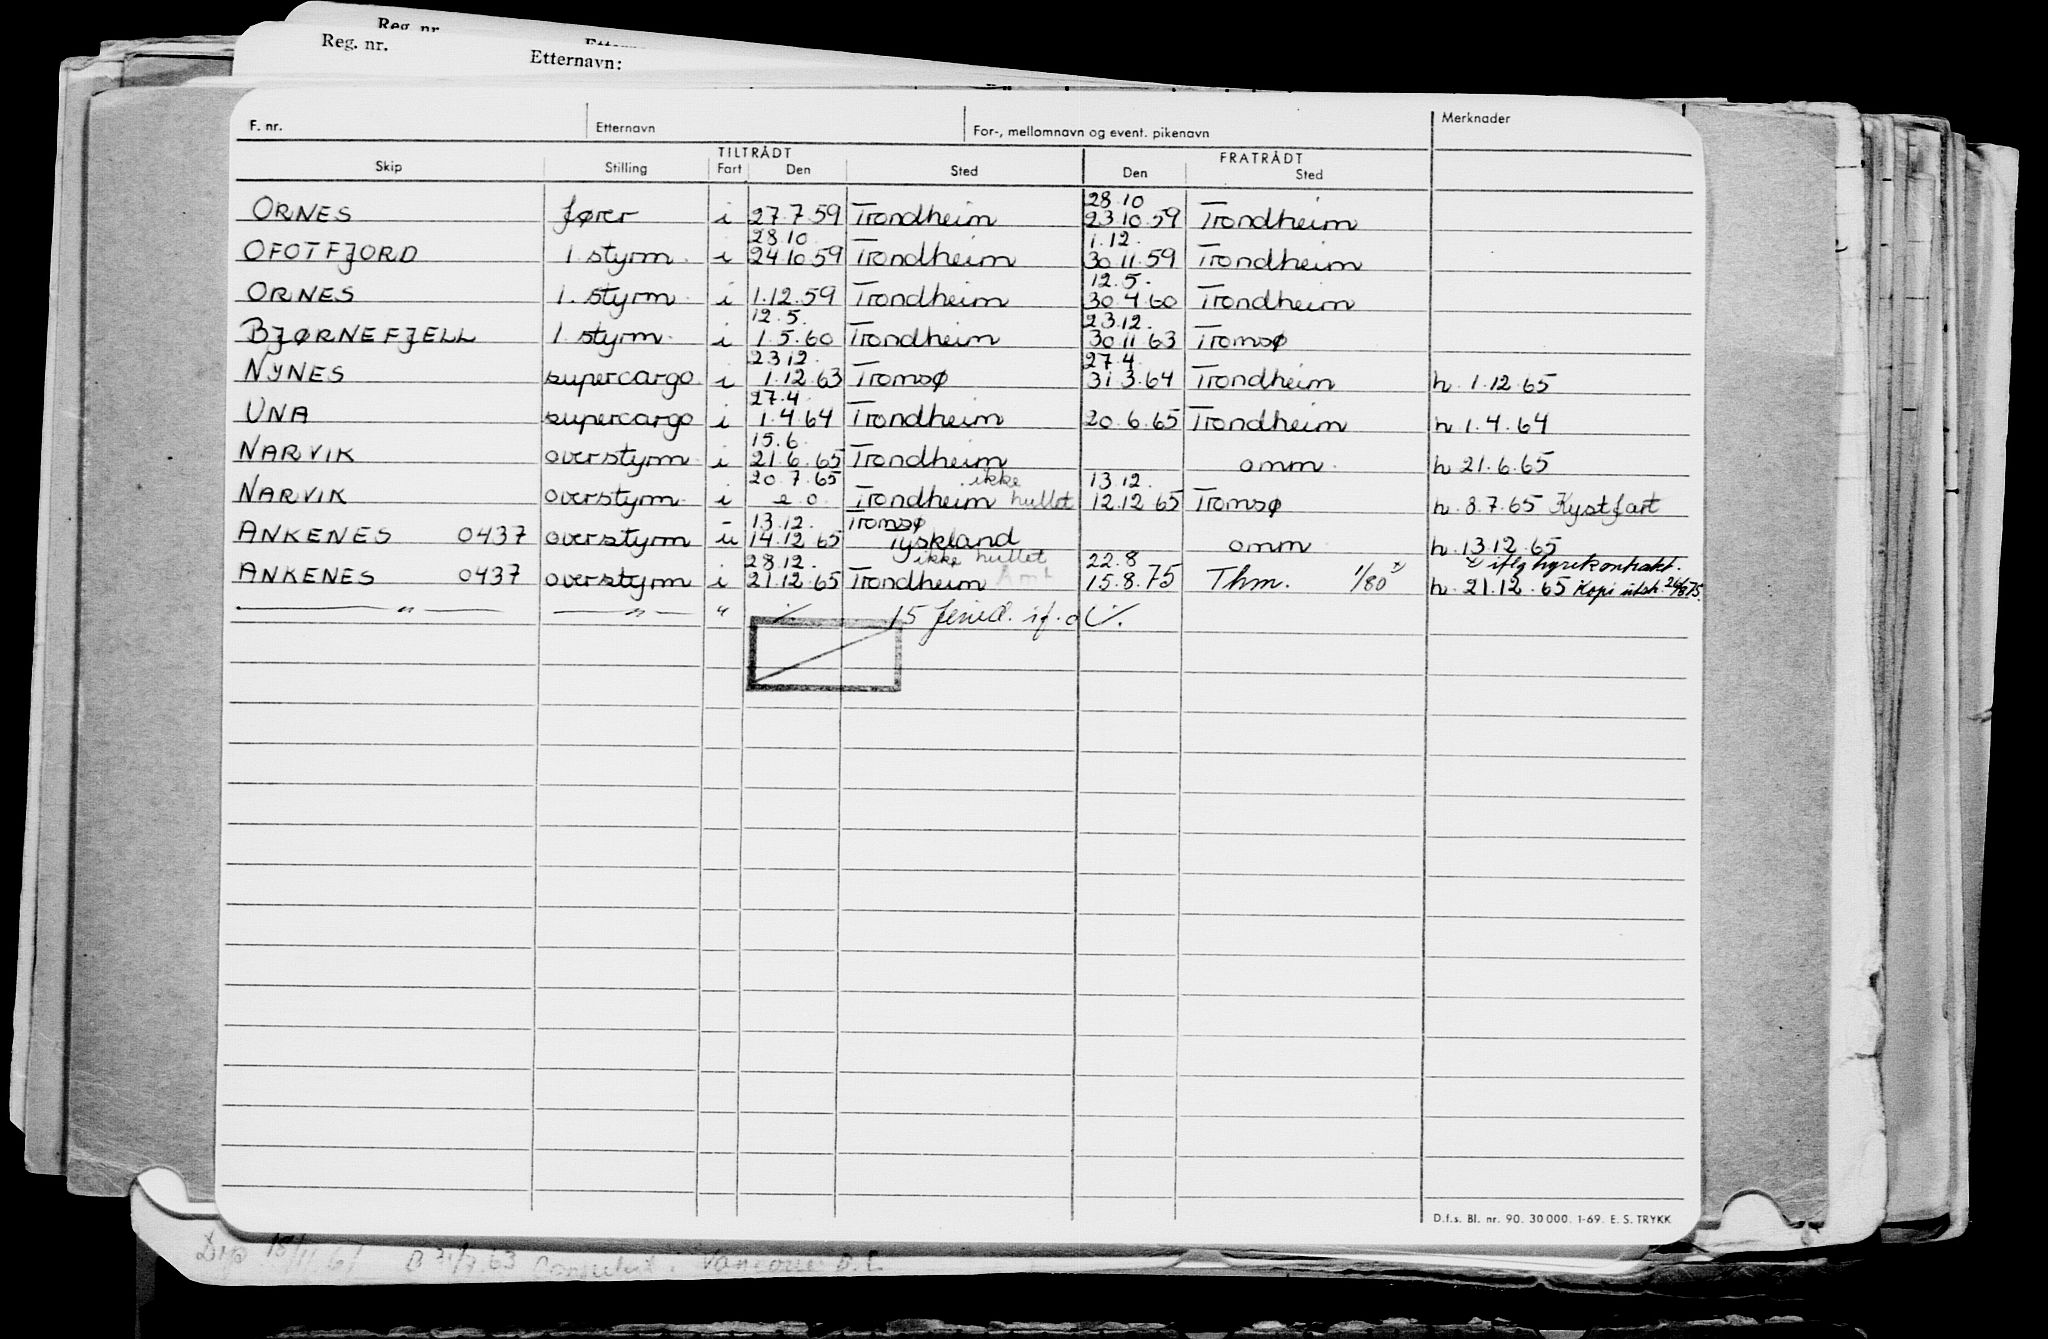 Reg. nr.
Reg. nr.
Etternavn:
F. nr. Etternavn For-, mellomnavn og event. pikenavn Merknader
TILTRÅDT FRATRÅDT
Skip Stilling Fart Den Sted Den Sted
28.10
ORNES fører i 27.7.59 Trondheim 23.10.59 Trondheim
28.10. 1.12.
OFOTFJORD 1 styrm. i 24.10.59 Trondheim 30.11.59 Trondheim
12.5.
ORNES 1. styrm. i 1.12.59 Trondheim 30.4.60 Trondheim
12.5. 23.12.
BJØRNEFJELL 1 styrm. i 1.5.60 Trondheim 30.11.63 Tromsø
23.12. 27.4.
NYNES supercargo i 1.12.63 Tromsø 31.3.64 Trondheim h. 1.12.65
27.4.
UNA supercargo i 1.4.64 Trondheim 20.6.65 Trondheim h. 1.4.64
15.6.
NARVIK overstyrm. i 21.6.65 Trondheim omm. h 21.6.65
20.7.65 ikke 13.12.
NARVIK overstyrm. i e.o. Trondheim hullet 12.12.65 Tromsø h. 8.7.65 Kystfart
13.12. Tromsø
ANKENES 0437 overstyrm u 14.12.65 Tyskland omm h. 13.12.65
28.12. ikke hullet 22.8 iflg hyrekontrakt.
ANKENES 0437 overstyrm i 21.12.65 Trondheim Amt 15.8.75 Thm. 1/80 h. 21.12.65 Kopi utsk.
—"— —"— " 15 ./.
D.f.s. Bl. nr. 90. 30 000. 1-69. E. S. TRYKK